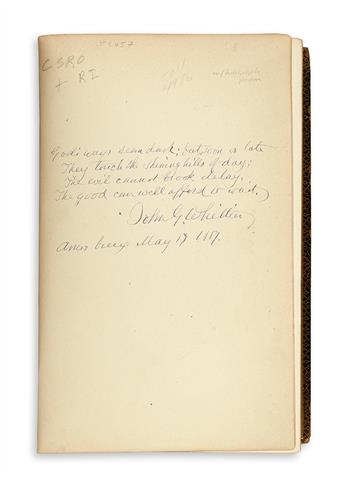 CSRO
+ RI
God's ways seem dark; but, soon or late
They touch the shining hills of day;
The evil cannot brook delay,
The good can well afford to wait.
John G. Whittier
Amesbury May 17 1887.